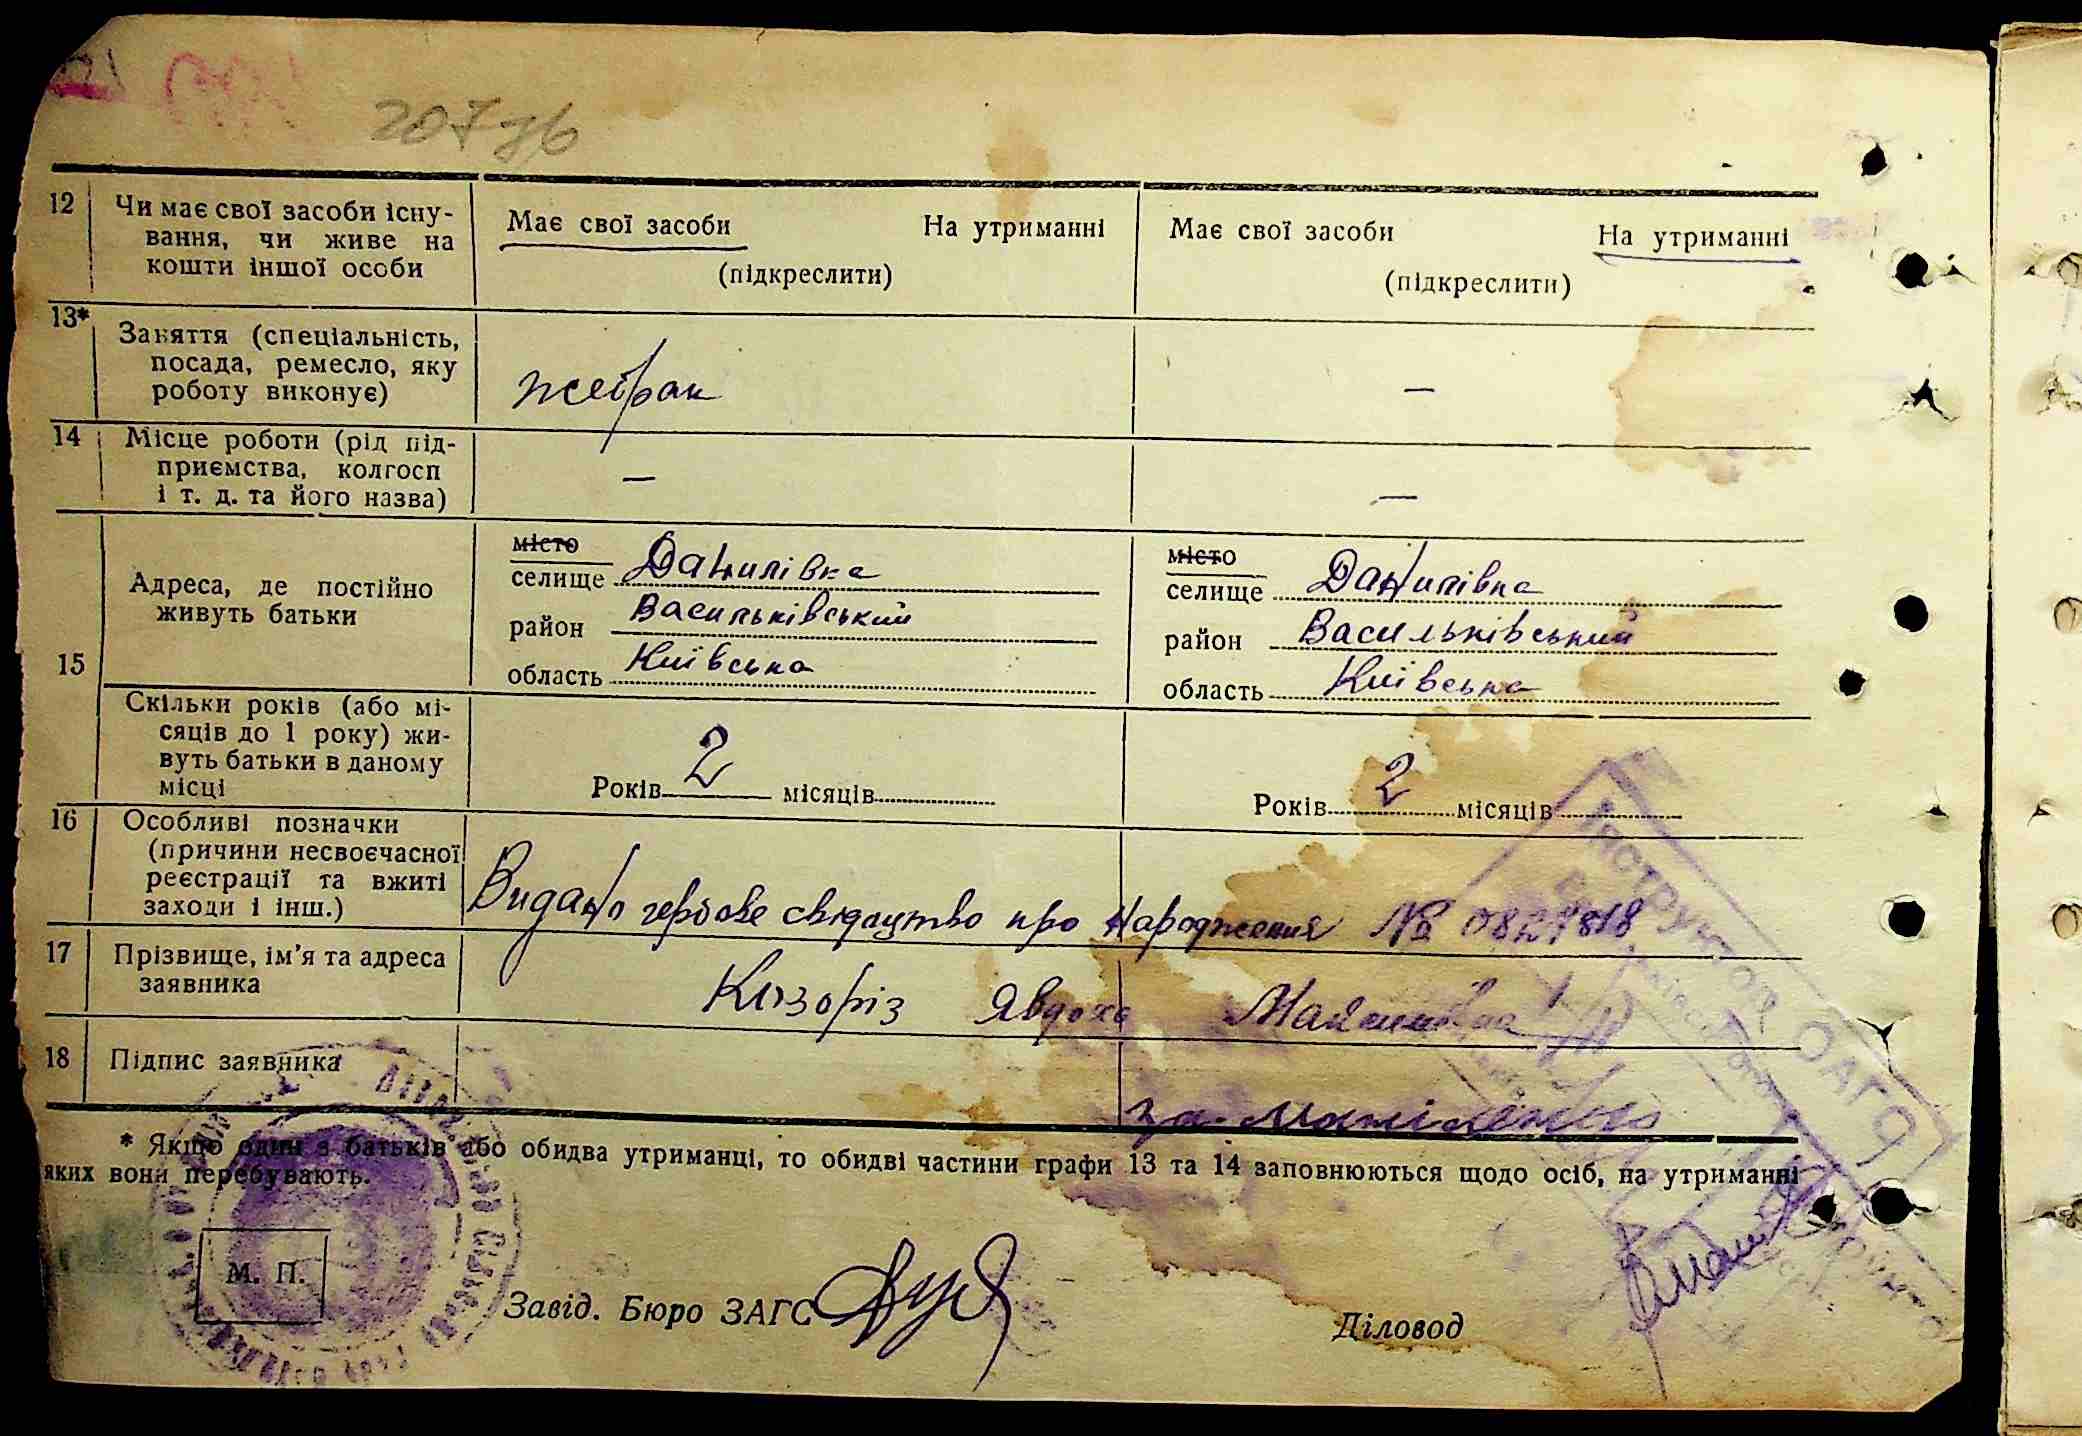 207
12 Чи має свої засоби існу-
вання, чи живе на
кошти іншої особи
Має свої засоби На утриманні
(підкреслити)
Має свої засоби На утриманні
(підкреслити)
13* Заняття (спеціальність,
посада, ремесло, яку
роботу виконує)
жебрак —
14 Місце роботи (рід під-
приємства, колгосп
і т. д. та його назва)
— —
15 Адреса, де постійно
живуть батьки
місто
селище Данилівка
район Васильківський
область Київська
місто
селище Данилівка
район Васильківський
область Київська
Скільки років (або мі-
сяців до 1 року) жи-
вуть батьки в даному
місці
Років 2 місяців
Років 2 місяців
16 Особливі позначки
(причини несвоєчасної
реєстрації та вжиті
заходи і інш.)
Видано гербове свідоцтво про народження №
17 Прізвище, ім’я та адреса
заявника
Козоріз Явдоха
18 Підпис заявника
за
* Якщо один з батьків або обидва утриманці, то обидві частини графи 13 та 14 заповнюються щодо осіб, на утриманні
яких вони перебувають.
М. П.
Завід. Бюро ЗАГС
Діловод
Інструктор ОАГС